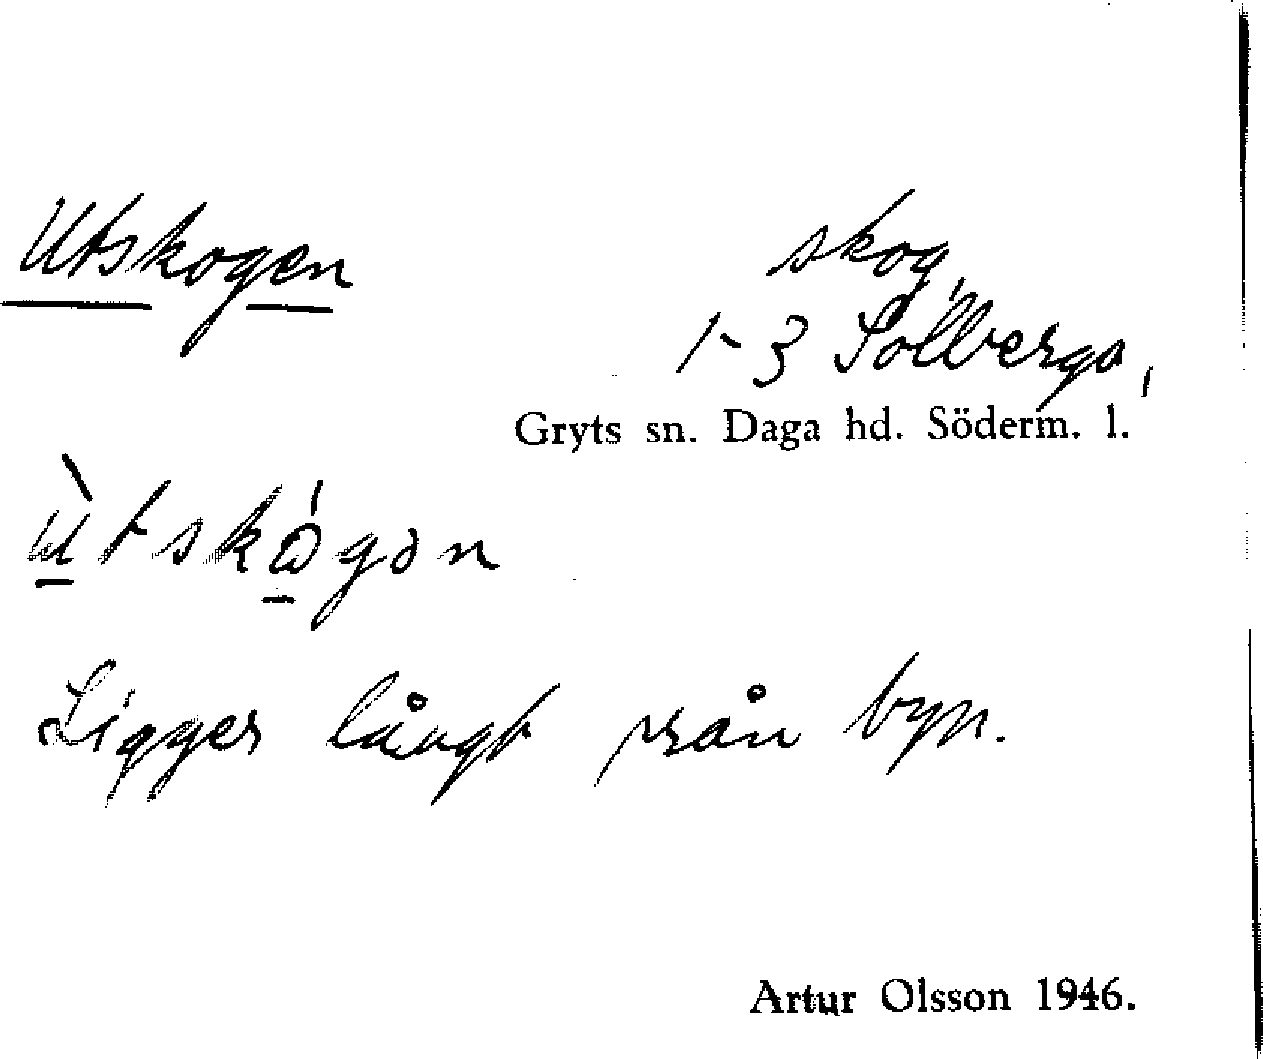 Utskogen
skog,
1-3 Solberga,
Gryts sn. Daga hd. Söderm. l.
ùtskógən
Ligger långt från byn.
Artur Olsson 1946.